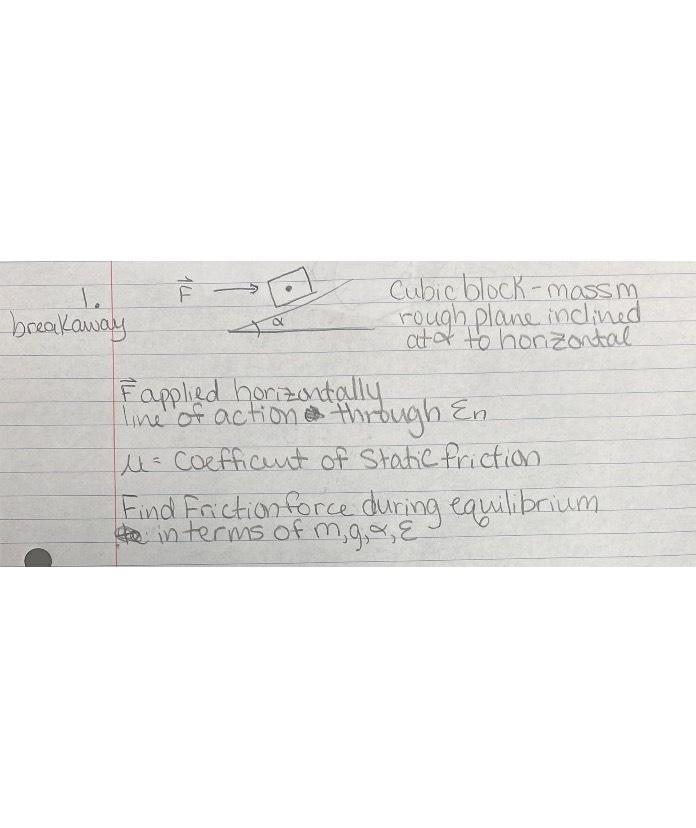 1.
breakaway
F⃗
α
Cubic block - mass m
rough plane inclined
at α to horizontal
F⃗ applied horizontally
line of action through Σn
μ = Coefficent of Static friction
Find Friction force during equilibrium
in terms of m, g, α, Σ